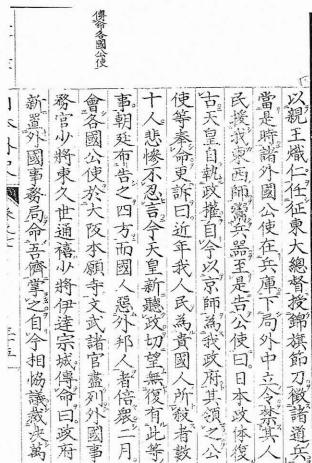 傳命各國公使
以親王熾仁任征東大總督授錦旗節刀徵諸道兵
當是時諸外國公使在兵庫下局外中立令禁其人
民援我東西師鬻兵器至是告公使曰日本政体復
古天皇自執政權自今以京師為我政府其領之公
使等奉命更訴曰近年我人民為貴國人所殺者數
十人悲慘不忍言今天皇新聽政切望無復有此等
事朝廷布告之四方而國人惡外邦人者倍猥二月
會各國公使於大阪本願寺文武諸官盡列外國事
務官少將東久世通禧少將伊達宗城傳命曰政府
新置外國事務局命吾儕掌之自今相協議裁決萬